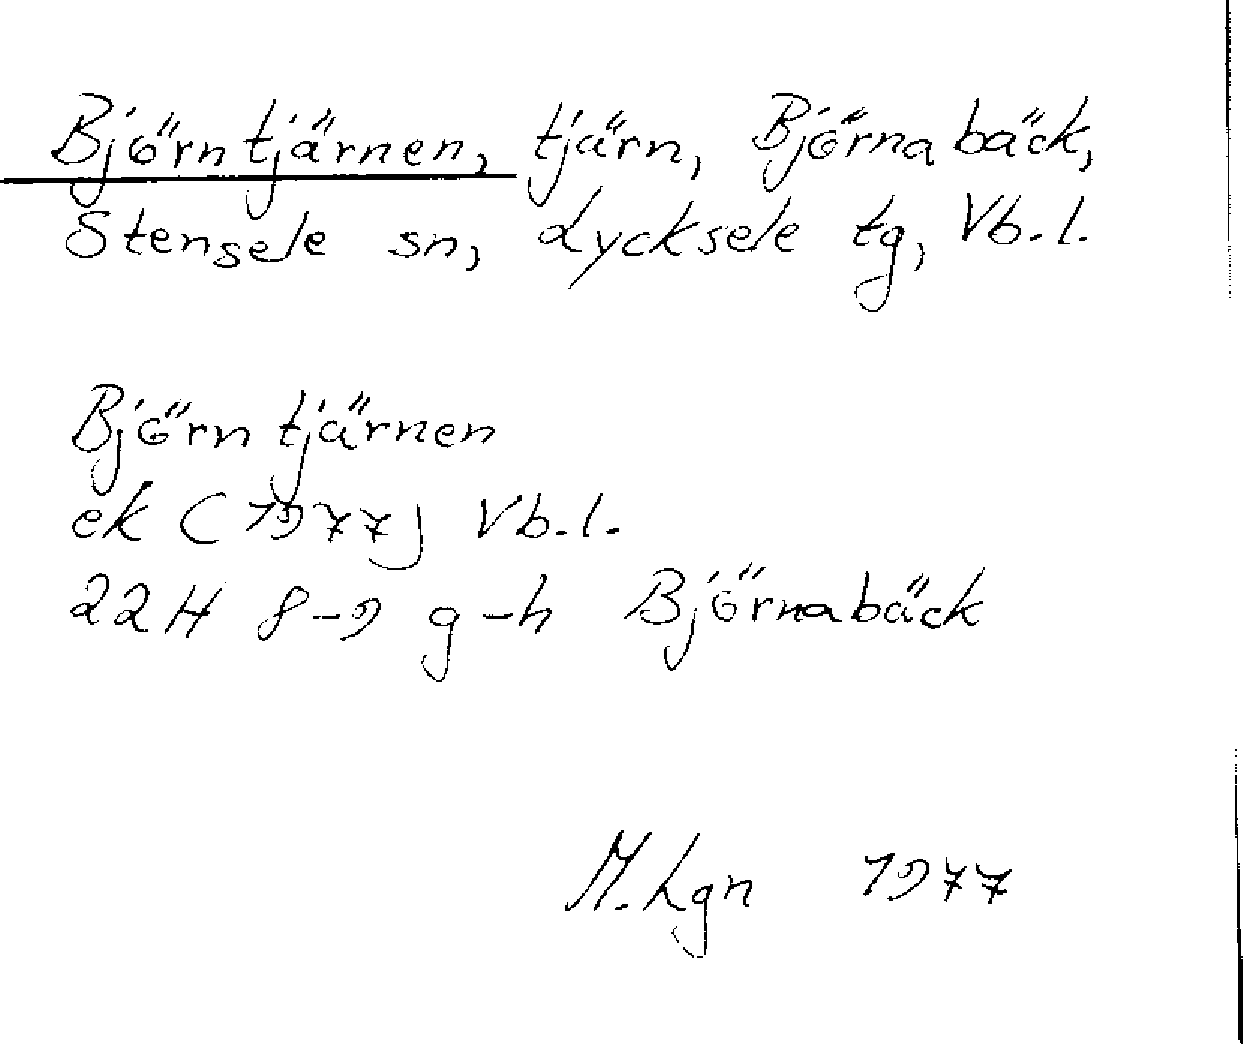 Björntjärnen, tjärn, Björnabäck,
Stensele sn, Lycksele tg, Vb.l.
Björntjärnen
ek (1977) Vb.l.
22H 8-9 g-h Björnabäck
M.Lgn 1977